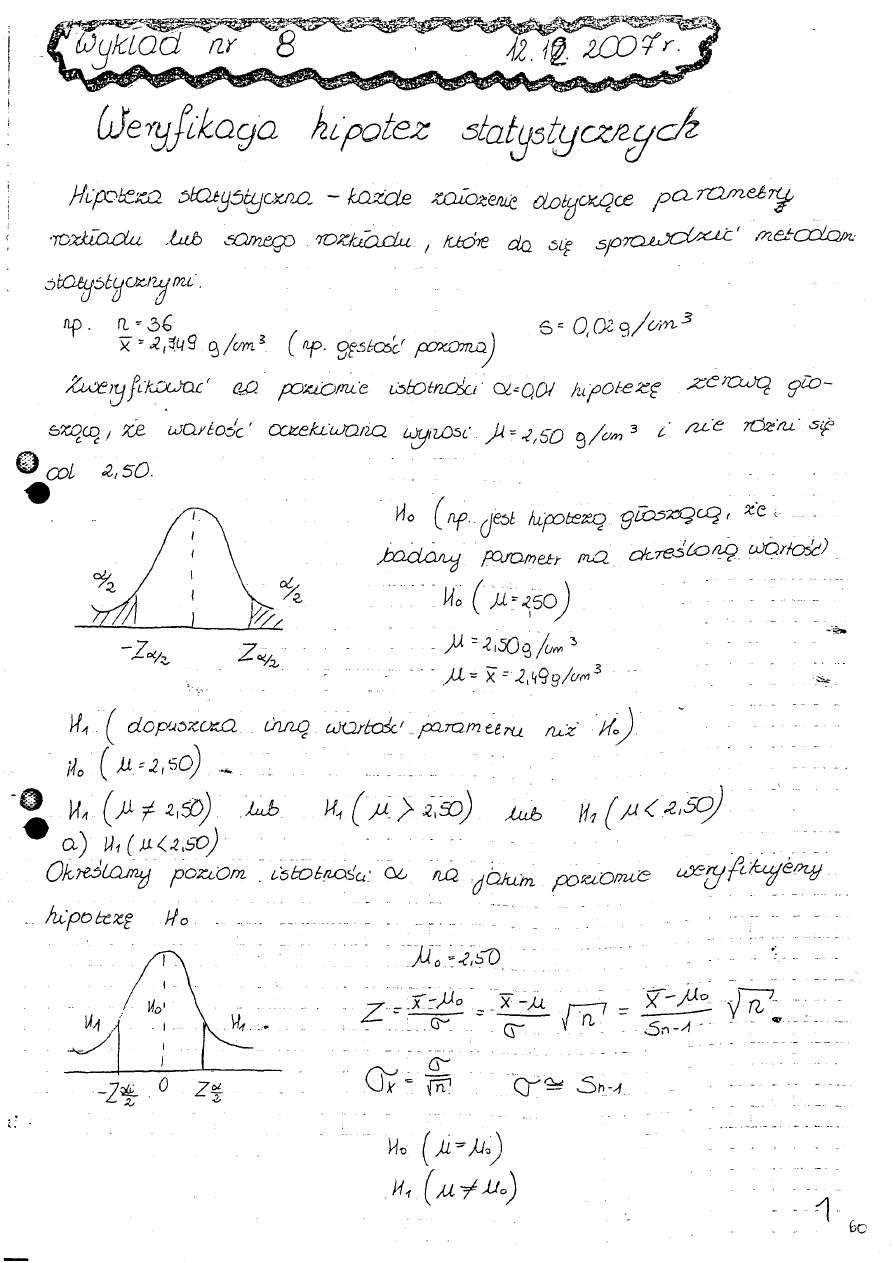 Wykład nr 8 12.12.2007r.
Weryfikacja hipotez statystycznych
Hipoteza statystyczna – każde założenie dotyczące parametru
rozkładu lub samego rozkładu, które da się sprawdzić metodami
statystycznymi.
np. n = 36 s = 0,02 g/cm³
x̄ = 2,749 g/cm³ (np. gęstość poziomu)
Zweryfikować na poziomie istotności α=0,01 hipotezę zerową gło-
szącą, że wartość oczekiwana wynosi μ = 2,50 g/cm³ i nie różni się
od 2,50.
H₀ (np. jest hipotezą głoszącą, że
badany parametr ma określoną wartość)
α/2 α/2
H₀ (μ = 2,50)
μ = 2,50 g/cm³
-Zα/2 Zα/2
μ = x̄ = 2,49 g/cm³
H₁ (dopuszcza inną wartość parametru niż H₀)
H₀ (μ = 2,50)
H₁ (μ ≠ 2,50) lub H₁ (μ > 2,50) lub H₁ (μ < 2,50)
a) H₁ (μ < 2,50)
Określamy poziom istotności α na jakim poziomie weryfikujemy
hipotezę H₀
μ₀ = 2,50
H₁ H₀ H₁
Z = (x̄-μ₀)/σ = (x̄-μ)/σ √n = (x̄-μ₀)/Sn-1 √n
-Zα/2 0 Zα/2
σx̄ = σ/√n σ ≅ Sn-1
H₀ (μ = μ₀)
H₁ (μ ≠ μ₀)
1
60